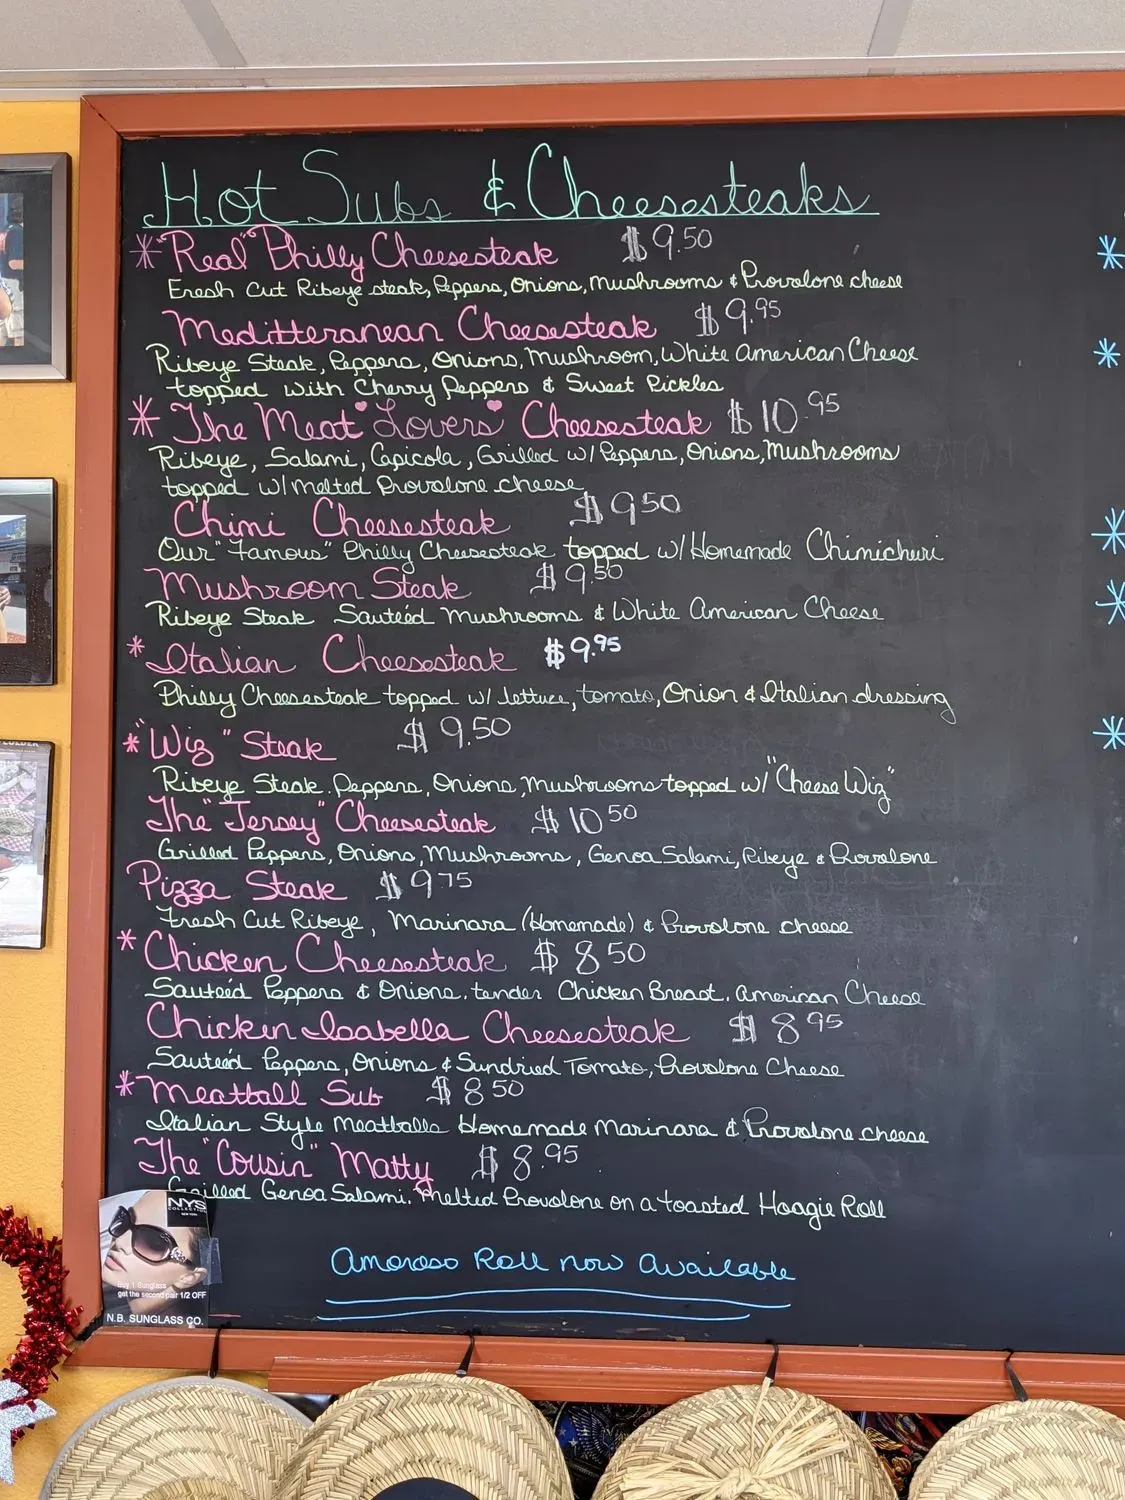 Hot Subs & Cheesesteaks
* "Real" Philly Cheesesteak $9.50
Fresh Cut Ribeye steak, Peppers, Onions, Mushrooms & Provolone cheese
Meditteranean Cheesesteak $9.95
Ribeye Steak, Peppers, Onions, Mushroom, White American Cheese
topped with Cherry Peppers & Sweet Pickles
* The Meat "Lovers" Cheesesteak $10.95
Ribeye, Salami, Capicola, Grilled w/ Peppers, Onions, Mushrooms
topped w/ melted Provolone cheese
Chimi Cheesesteak $9 50
Our "Famous" Philly Cheesesteak topped w/ Homemade Chimichuri
Mushroom Steak $9.50
Ribeye Steak Sauteéd Mushrooms & White American Cheese
* Italian Cheesesteak $9.95
Philly Cheesesteak topped w/ lettuce, tomato, Onion & Italian dressing
* "Wiz" Steak $9.50
Ribeye Steak. Peppers, Onions, Mushrooms topped w/ "Cheese Wiz"
The "Jersey" Cheesesteak $10 50
Grilled Peppers, Onions, Mushrooms, Genoa Salami, Ribeye & Provolone
Pizza Steak $9 75
Fresh Cut Ribeye, Marinara (Homemade) & Provolone cheese
* Chicken Cheesesteak $8 50
Sauteéd Peppers & Onions. tender Chicken Breast. American Cheese
Chicken Isabella Cheesesteak $8 95
Sauteéd Peppers, Onions & Sundried Tomato, Provolone Cheese
* Meatball Sub $8 50
Italian Style Meatballs Homemade Marinara & Provolone cheese
The "Cousin" Matty $8.95
Grilled Genoa Salami. Melted Provolone on a toasted Hoagie Roll
Amoroso Roll now Available
NYS
COLLECTION
NEW YORK
Buy 1 Sunglass
get the second pair 1/2 OFF
N.B. SUNGLASS CO.